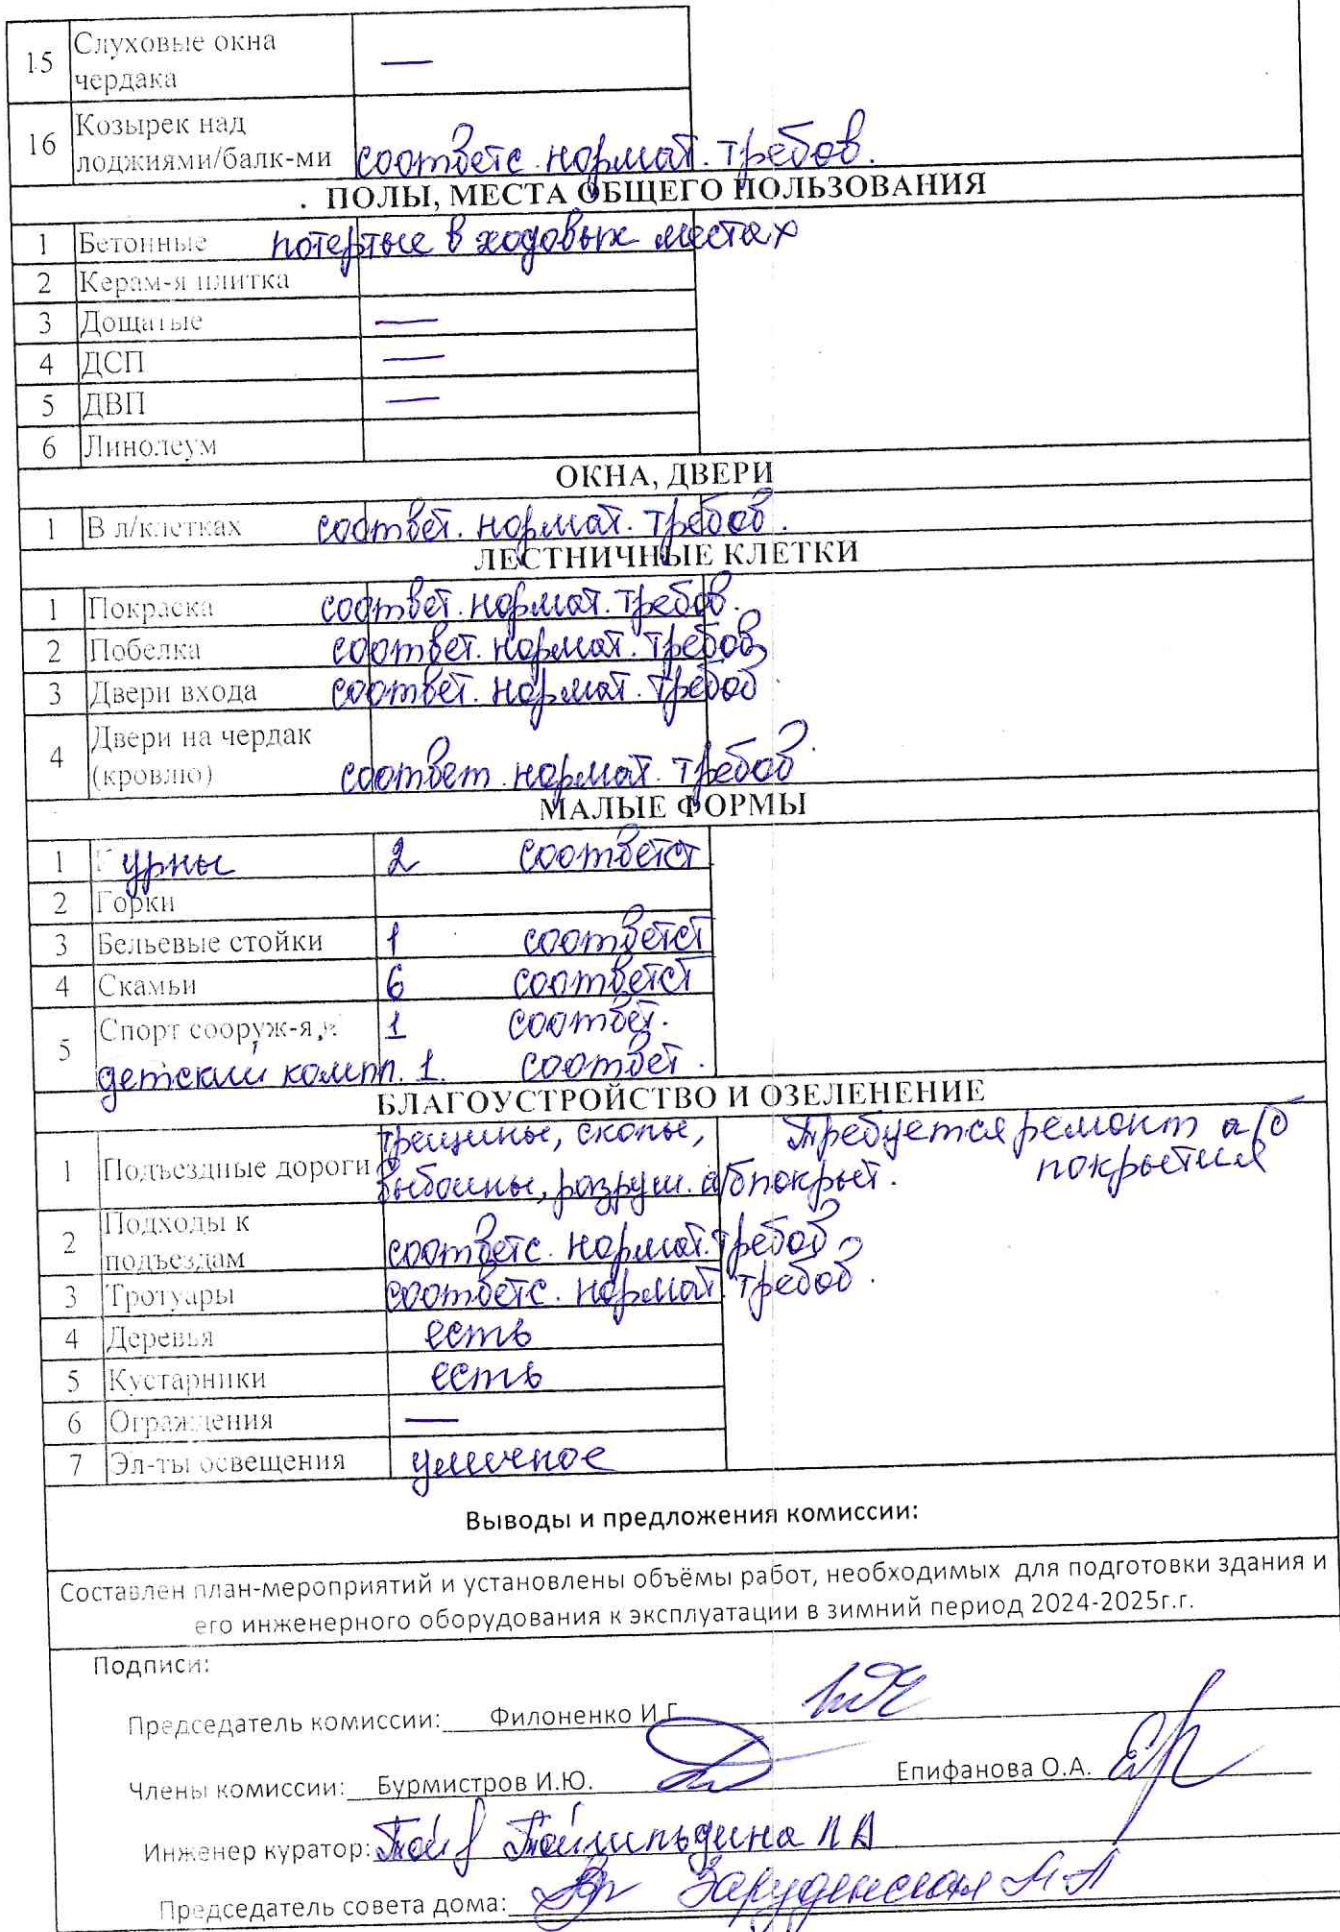 15 Слуховые окна —
чердака
16 Козырек над
лоджиями/балк-ми соответс. нормат. требов.
. ПОЛЫ, МЕСТА ОБЩЕГО ПОЛЬЗОВАНИЯ
1 Бетонные потертые в ходовых местах
2 Керам-я плитка
3 Дощатые —
4 ДСП —
5 ДВП —
6 Линолеум
ОКНА, ДВЕРИ
1 В л/клетках соответ. нормат. требов.
ЛЕСТНИЧНЫЕ КЛЕТКИ
1 Покраска соответ. нормат. требов.
2 Побелка соответ. нормат. требов
3 Двери входа соответ. нормат. требов
4 Двери на чердак
(кровлю) соответ. нормат. требов.
МАЛЫЕ ФОРМЫ
1 урны 2 соответст
2 Горки
3 Бельевые стойки 1 соответст
4 Скамьи 6 соответст
5 Спорт сооруж-я, 1 соответ.
детский компл. 1. соответ.
БЛАГОУСТРОЙСТВО И ОЗЕЛЕНЕНИЕ
трещины, сколы, Требуется ремонт а/б
1 Подъездные дороги выбоины, разруш. а/б покрыт. покрытия
2 Подходы к
подъездам соответс. нормат. требов
3 Тротуары соответс. нормат. требов.
4 Деревья есть
5 Кустарники есть
6 Ограждения —
7 Эл-ты освещения уличное
Выводы и предложения комиссии:
Составлен план-мероприятий и установлены объёмы работ, необходимых для подготовки здания и
его инженерного оборудования к эксплуатации в зимний период 2024-2025г.г.
Подписи:
Председатель комиссии: Филоненко И.Г.
Члены комиссии: Бурмистров И.Ю. Епифанова О.А.
Инженер куратор:
Председатель совета дома: